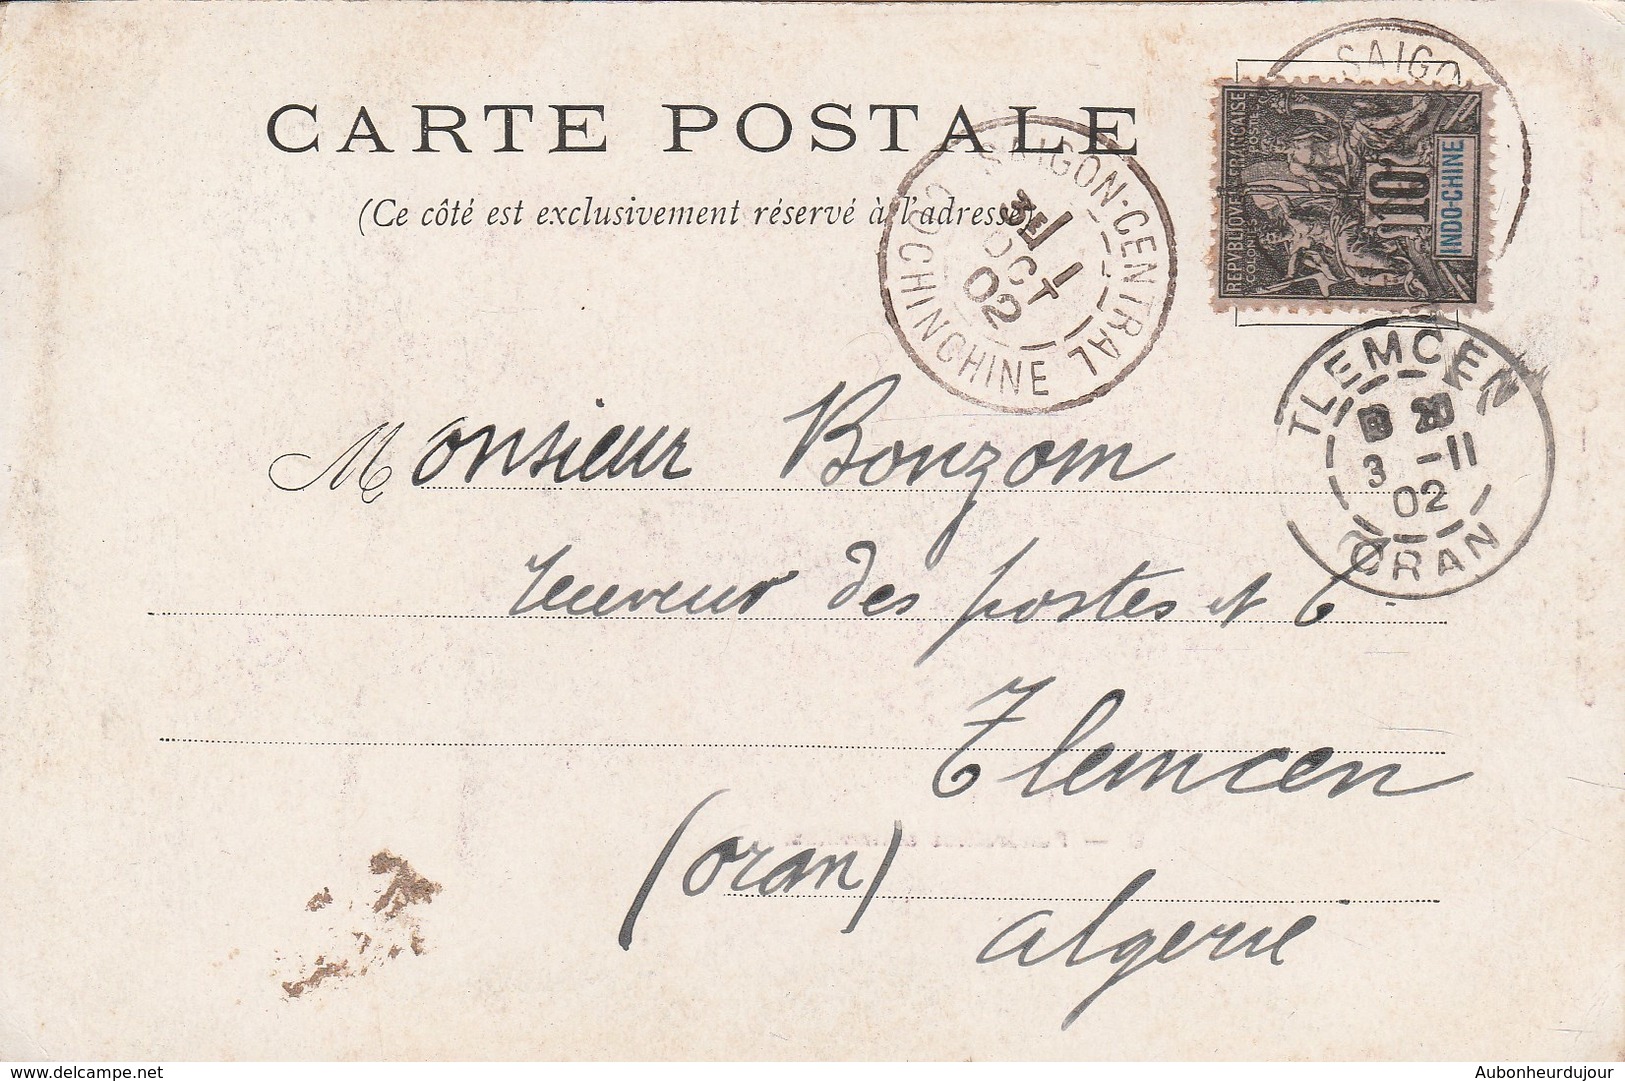 CARTE POSTALE
(Ce côté est exclusivement réservé à l'adresse)
SAIGON-CENTRAL
3E 1
1 OCT
02
COCHINCHINE
SAIGO
REPVBLIQVE FRANÇAISE
COLONIES POSTES
10
INDO-CHINE
TLEMCEN
3 -11
02
ORAN
Monsieur Bonzom
receveur des postes et T
Tlemcen
(oran)
algerie
www.delcampe.net
Aubonheurdujour